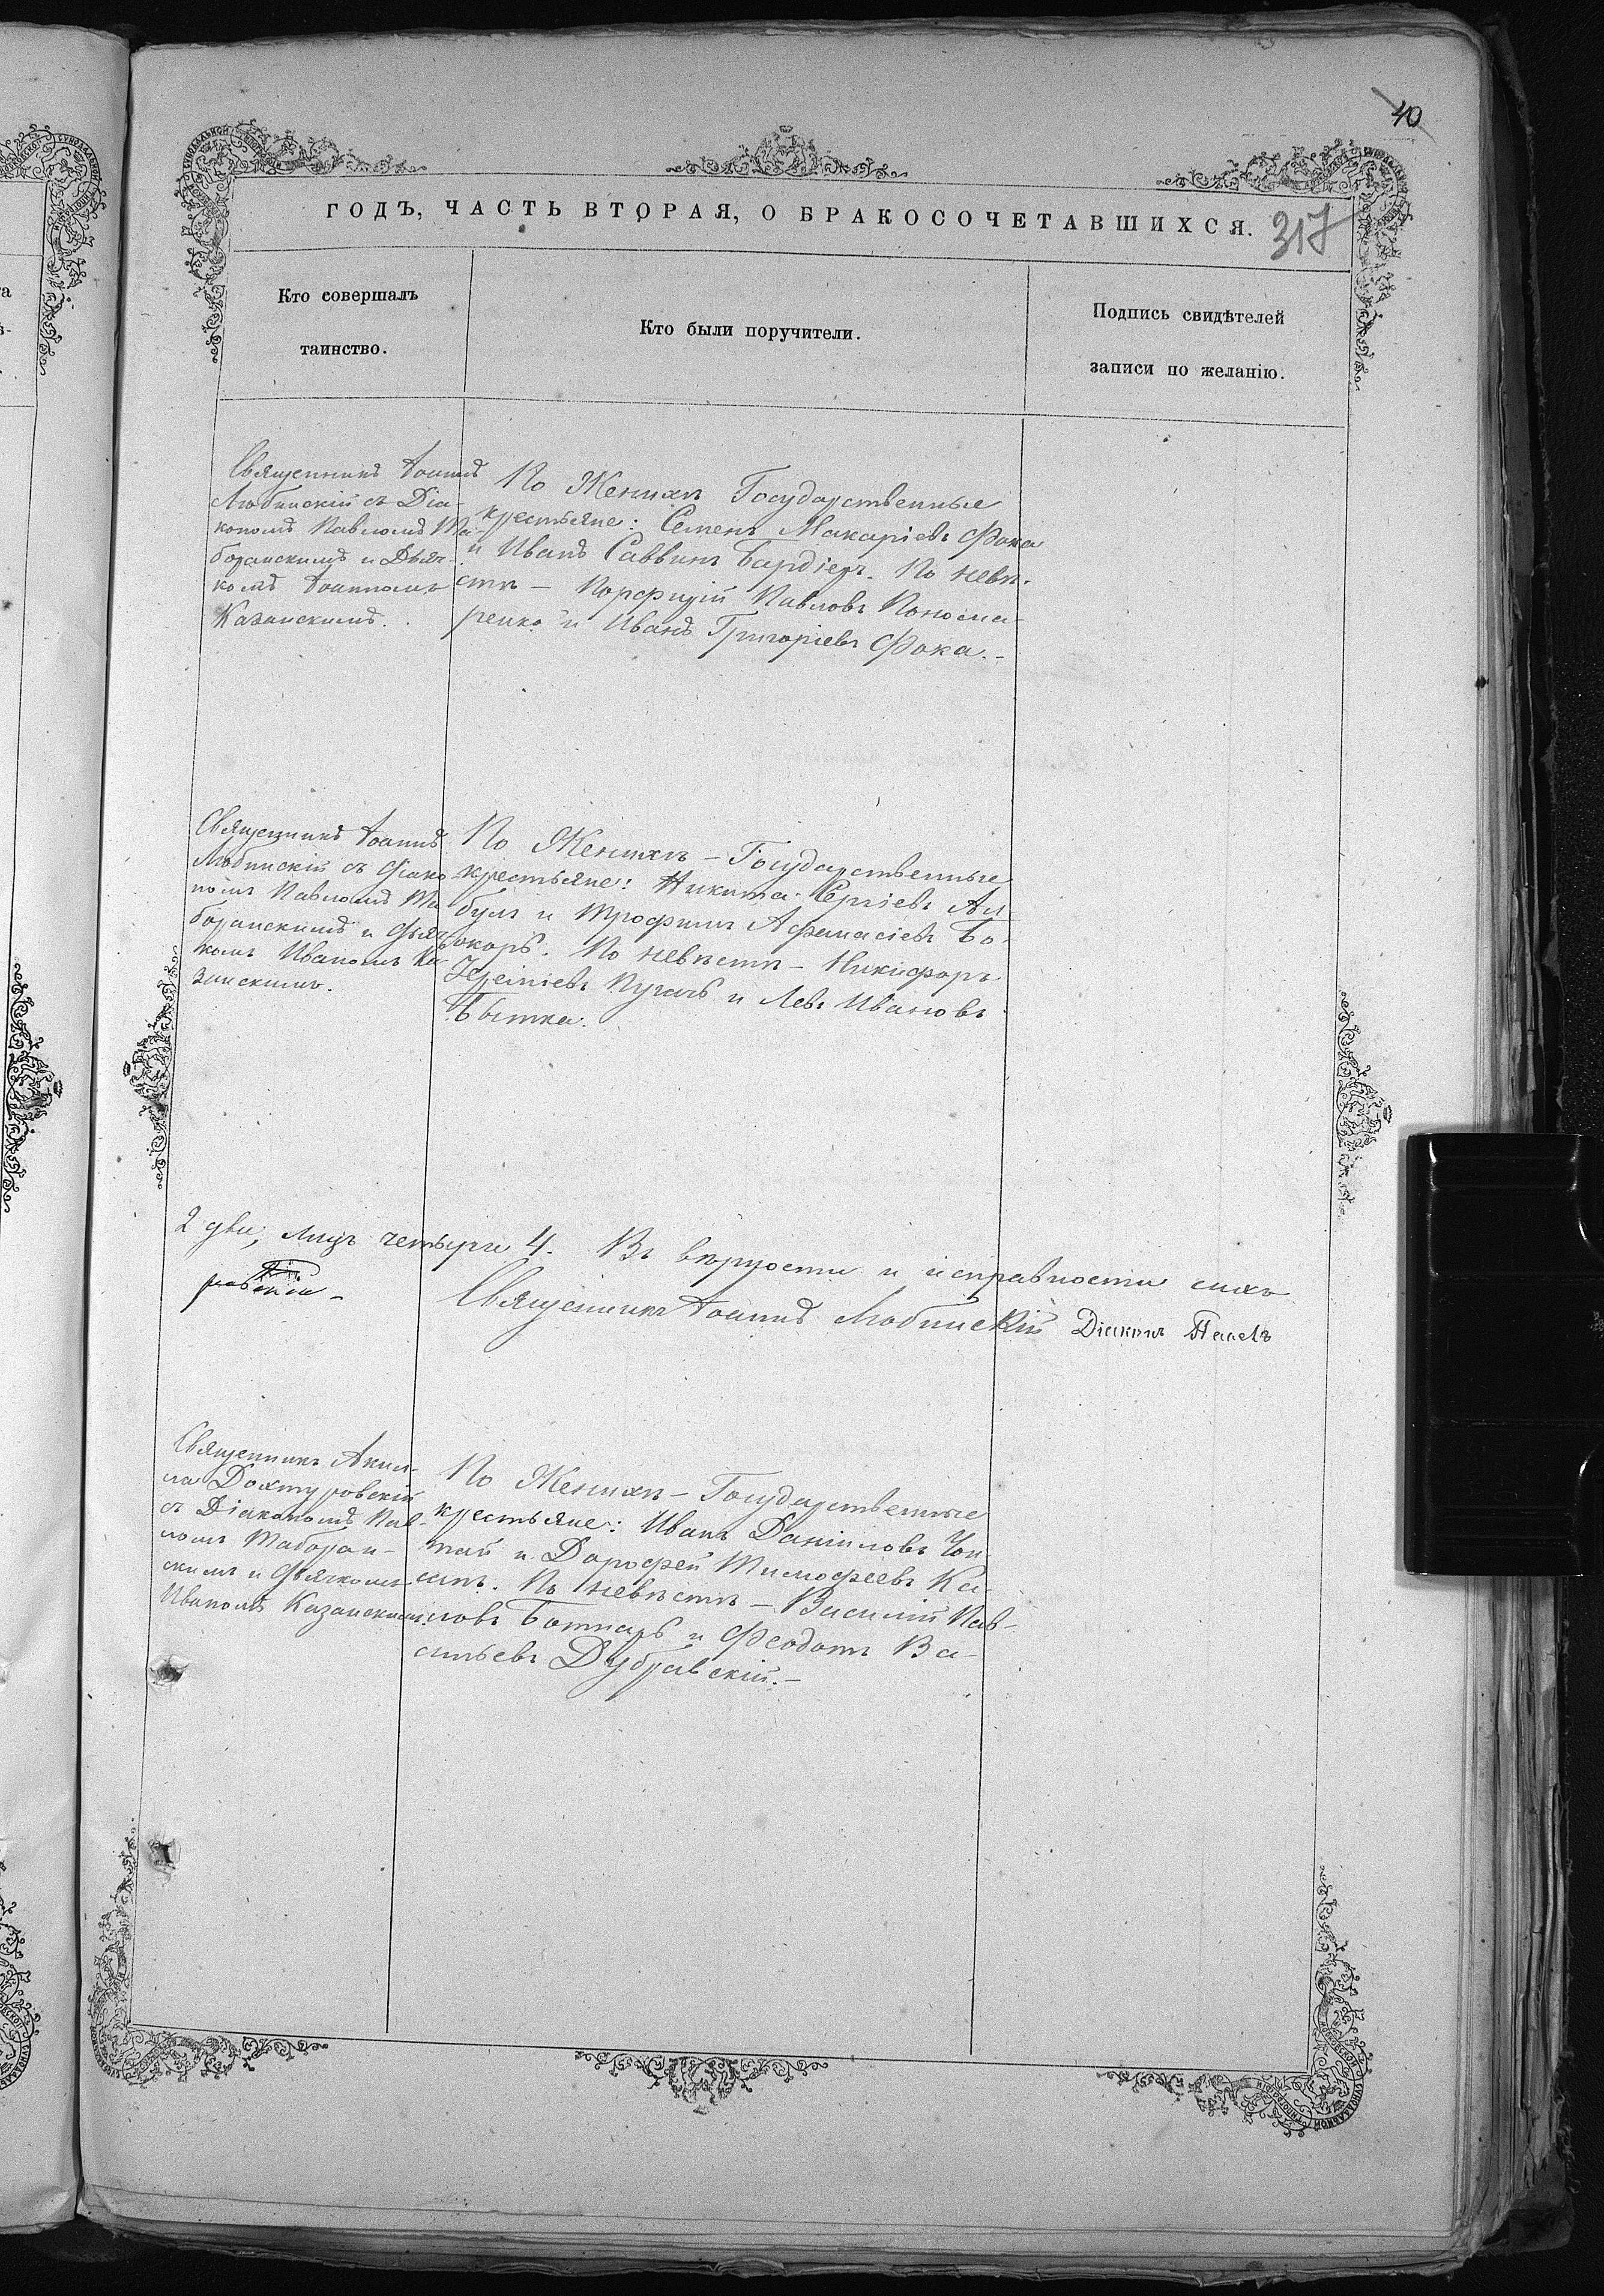 40
ГОДЪ, ЧАСТЬ ВТОРАЯ, О БРАКОСОЧЕТАВШИХСЯ.
317
Кто совершалъ
таинство.
Кто были поручители.
Подпись свидѣтелей
записи по желанію.
Священникъ Іоаннъ
Любинскій съ Діа-
кономъ Павломъ Та-
боранскимъ и Дьяч-
комъ Іоанномъ
Казанскимъ.
По Женихѣ Государственные
крестьяне: Семенъ Макаріевъ Фока
и Иванъ Саввинъ Бардіеръ. По невѣ-
стѣ – Порфирій Павловъ Понома-
ренко и Иванъ Григоріевъ Фока.–
Священникъ Іоаннъ
Любинскій съ Діако-
номъ Павломъ Та-
боранскимъ и Дьяч-
комъ Иваномъ Ка-
занскимъ.
По Женихѣ – Государственные
крестьяне: Никита Сергіевъ Ал-
булъ и Трофимъ Афанасіевъ Бо-
жоръ. По невѣстѣ – Никифоръ
Пугачъ и Левъ Ивановъ
Бытка.
2 два, лицъ четыре 4. Въ вѣрности и исправности сихъ
Священникъ Іоаннъ Любинскій Діаконъ Павелъ
Священникъ Акил-
ла Дохтуровскій
съ Діакономъ Пав-
ломъ Таборан-
скимъ и Дьячкомъ
Иваномъ Казанскимъ.
По Женихѣ – Государственные
крестьяне: Иванъ Даніиловъ
и Дорофей Тимофеевъ Ка-
По невѣстѣ – Василій Пав-
ловъ Ботнарь и Феодотъ Ва-
сильевъ Дубравскій.–